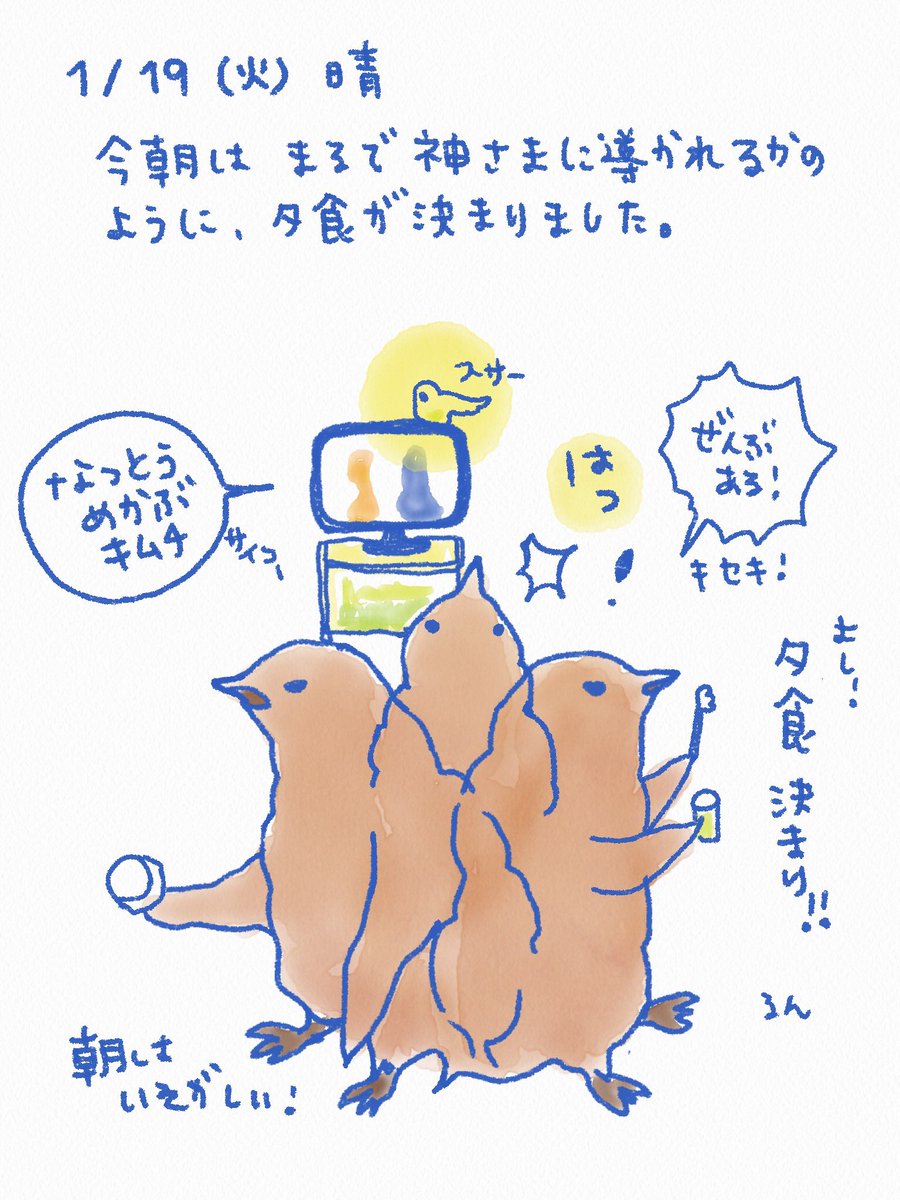 1/19(火) 晴
今朝は まるで神さまに導かれるかの
ように、夕食が決まりました。
スサー
なっとう
めかぶ
キムチ
サイコー
はっ
!
ぜんぶ
ある!
キセキ!
よし!
夕食決まり!!
るん
朝は
いそがしい!